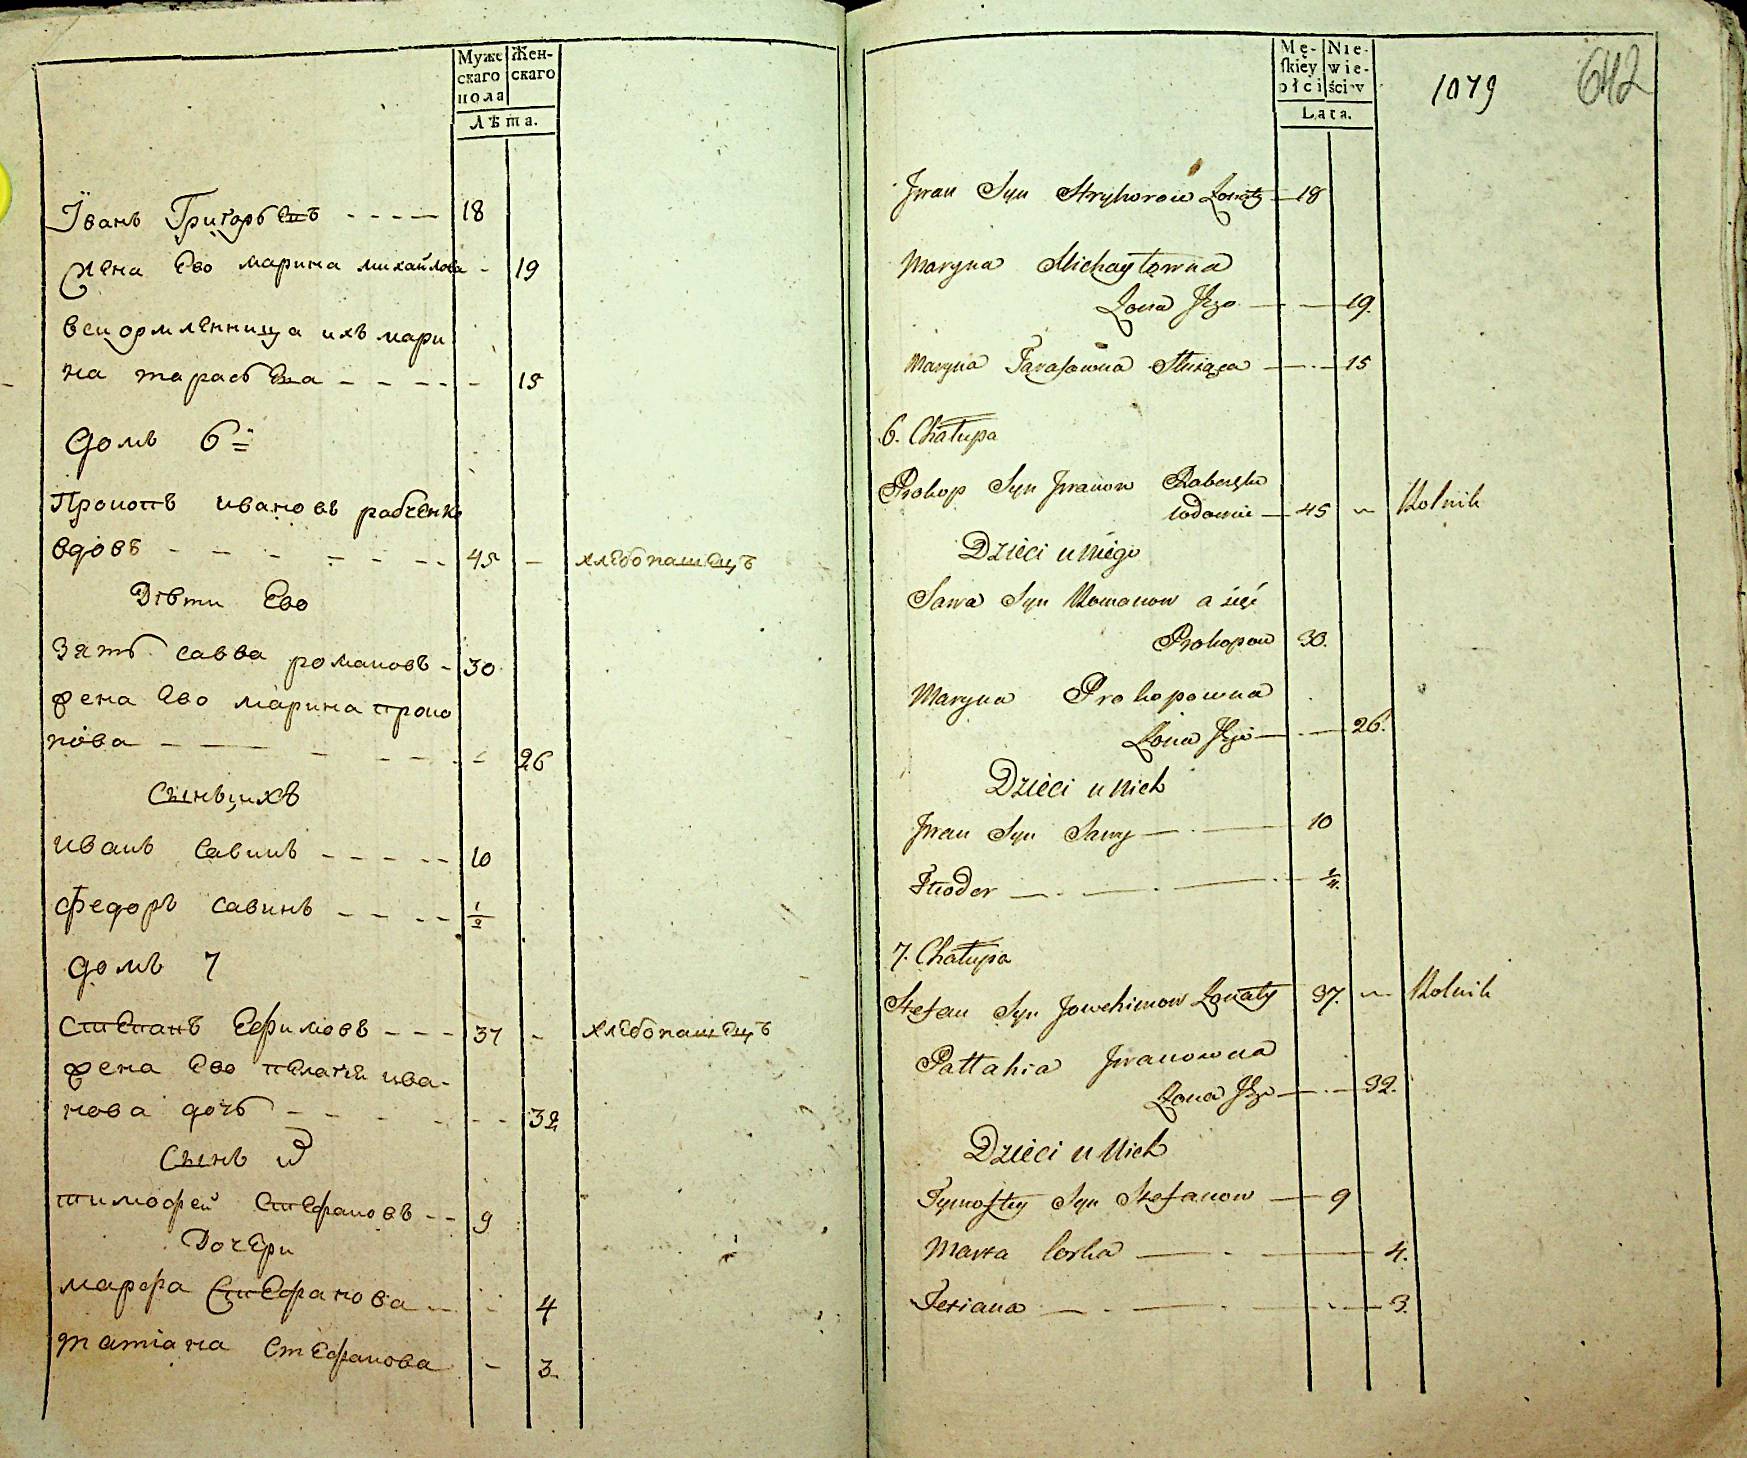 Муже
скаго
пола
Жен-
скаго
Лѣта.
Іванъ Григорьевъ - - - - 18
Жена Ево марина михайлова - 19
вскормленница ихъ мари
на тарасьева - - - - - 15
домъ 6й
Прокопъ ивановъ рабченко
вдовъ - - - - - - - 45 - хлебопашецъ
Дѣти Ево
Зять савва романовъ - 30
жена Ево марина проко
пова - - - - - - 26
Сынъ ихъ
иванъ Савинъ - - - - - 10
федоръ савинъ - - - - 1/2
домъ 7
степанъ Ефимовъ - - - 37 - хлебопашецъ
жена Ево пелагея ива-
нова дочь - - - - - - 32
Сынъ
тимофей Стефановъ - - 9
Дочери
марфа Стефанова - - - 4
татіана Стефанова - 3
Mę-
skiey
płci
Nie-
wie-
ściey
Lata.
1079
642
Jwan Syn Hryhorow Łonaty — 18
Maryna Michayłowna
Żona Jego — — 19.
Maryna Tarasowna — · — 15
6. Chałupa
Prokop Syn Jwanow
wdowiec — 45 ~ Rolnik
Dzieci u Niego
Sawa Syn Romanow a zięć
Prokopow 30.
Maryna Prokopowna
Żona Jego — · — 26.
Dzieci u Nich
Jwan Syn Sawy — · — 10
Fiodor — · — — · —
7. Chałupa
Stefan Syn Jowchimow Łonaty 37. ~ Rolnik
Pałłahia Jwanowna
Żona Jego — · — 32.
Dzieci u Nich
Tymofiey Syn Stefanow — 9
Marta Corka — · — — 4.
Teriana — · — · — 3.